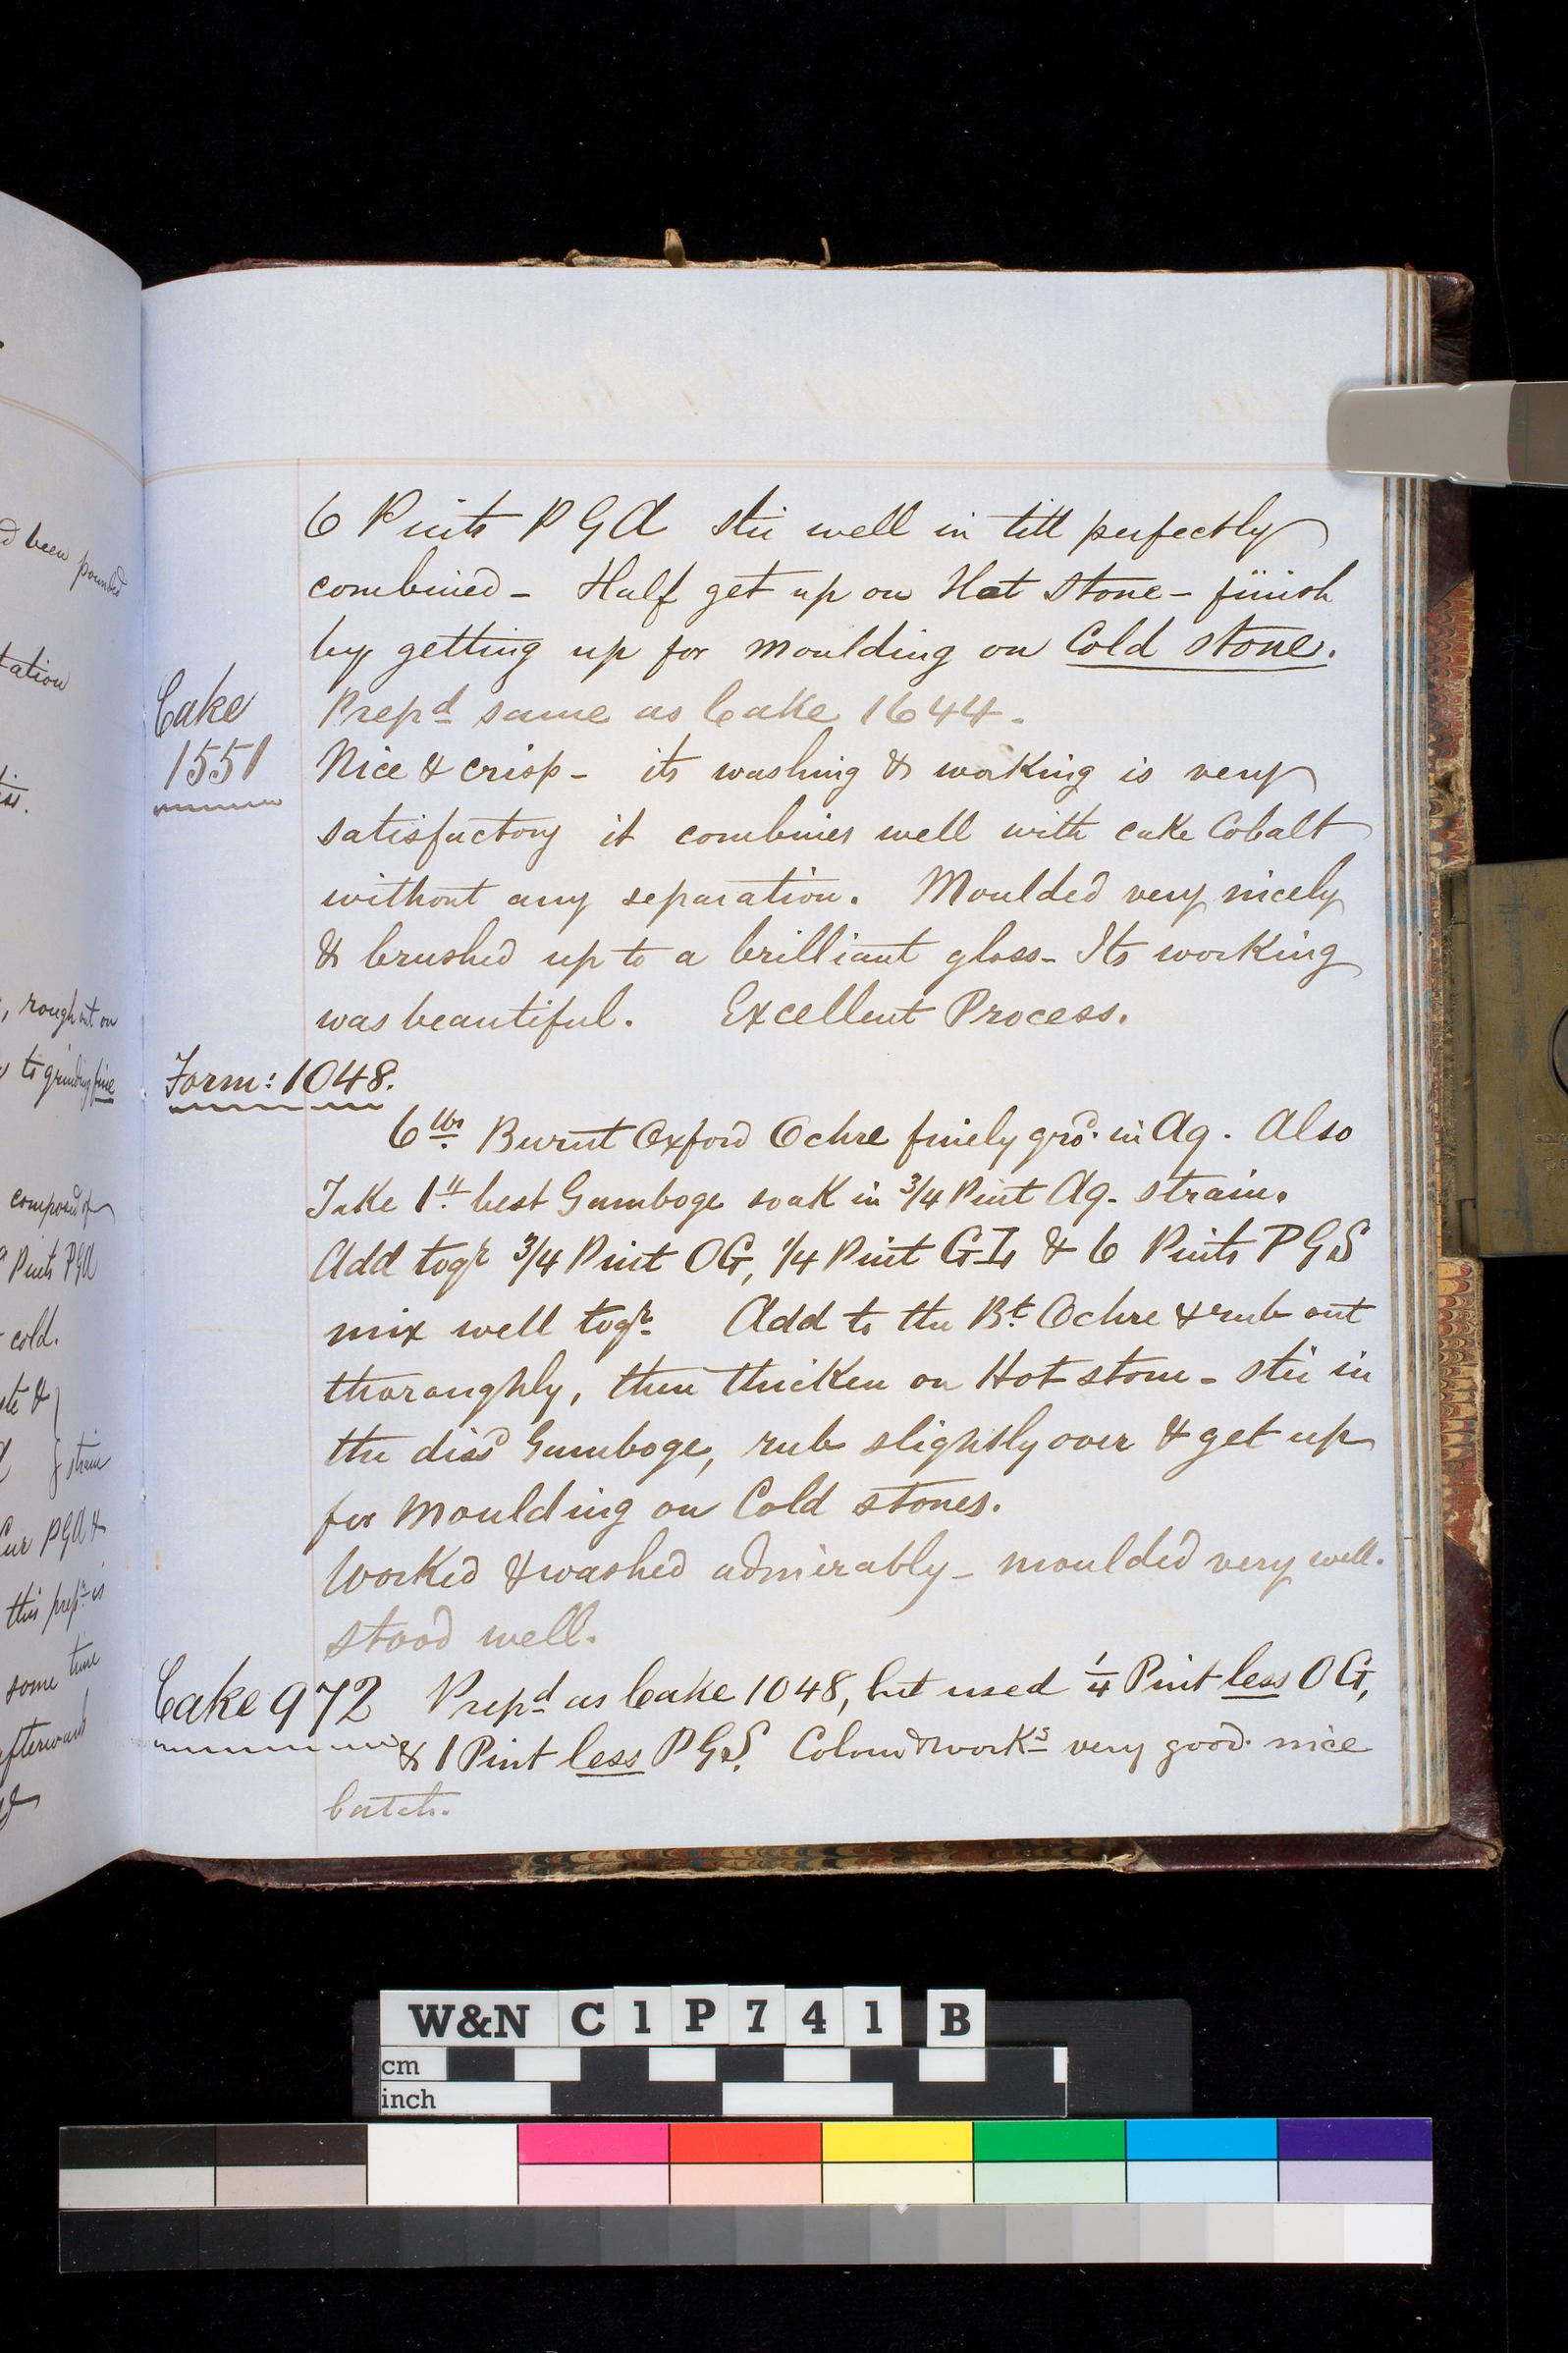 d been pounded
tation
, rough out on
to grinding fine
composed of
Pints PGA
cold.
strain
PGA &
this prepn is
some time
afterwards
6 Pints P G A stir well in till perfectly
combined - Half get up on Hot Stone - finish
by getting up for moulding on Cold stone.
Cake
1551
Prepd same as Cake 1644.
Nice & crisp - its washing & working is very
satisfactory it combines well with cake Cobalt
without any separation. Moulded very nicely
& brushed up to a brilliant gloss - Its working
was beautiful. Excellent Process.
Form: 1048.
6 lbs Burnt Oxford Ochre finely grd. in Aq. Also
Take 1 lb best Gamboge soak in 3/4 Pint Aq. strain.
Add togr 3/4 Pint OG, 1/4 Pint GL & 6 Pints P G S
mix well togr. Add to the Bt. Ochre & rub out
thoroughly, then thicken on Hot stone - stir in
the dissd Gamboge, rub slightly over & get up
for Moulding on Cold stones.
Worked & washed admirably - moulded very well.
stood well.
Cake 972 Prepd as Cake 1048, but used 1/4 Pint less OG,
& 1 Pint less P G S. Colour & works very good. nice
batch.
W&N C1P741 B
cm
inch